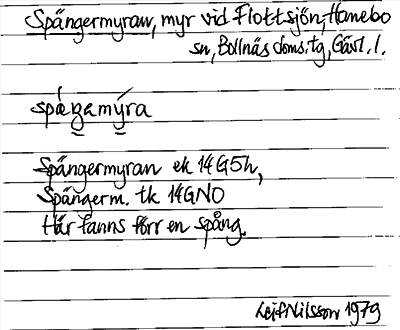 Spängermyran, myr vid Flottsjön, Hanebo
sn, Bollnäs doms.tg, Gävl. l.
spǽgamýra
Spängermyran ek 14G5h,
Spängerm. tk 14GNO
Här fanns förr en spång.
Leif Nilsson 1979